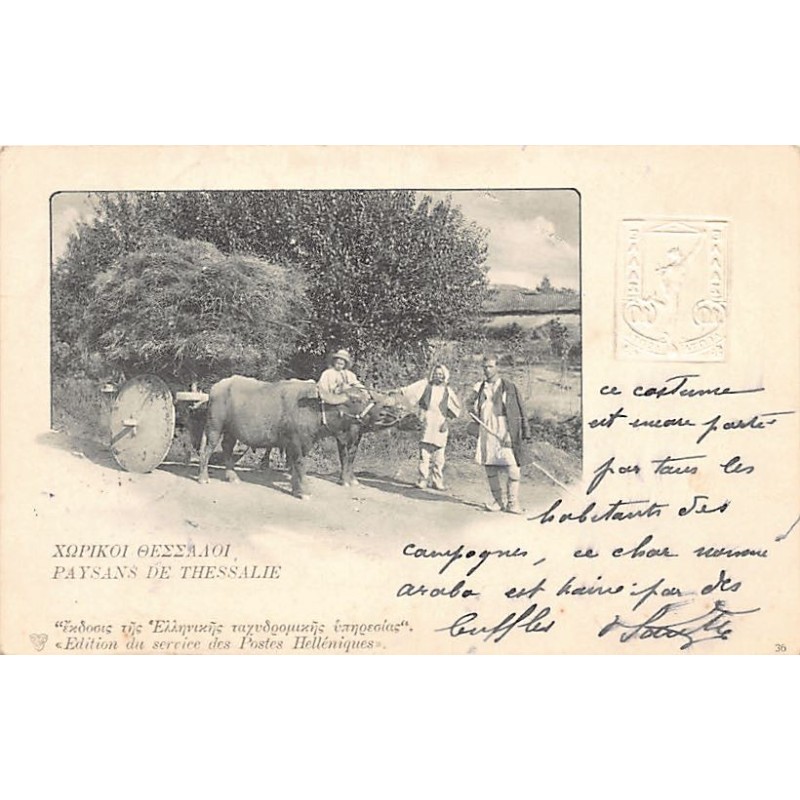 ΕΛΛΑΣ
ce costume
est encore porté
par tous les
habitants des
campagnes, ce char nommé
araba est trainé par des
buffles
ΧΩΡΙΚΟΙ ΘΕΣΣΑΛΟΙ
PAYSANS DE THESSALIE
"ἔκδοσις τῆς Ἑλληνικῆς ταχυδρομικῆς ὑπηρεσίας".
«Edition du service des Postes Helléniques».
36